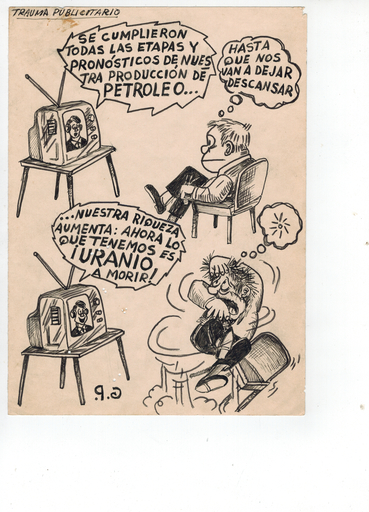 TRAUMA PUBLICITARIO
SE CUMPLIERON
TODAS LAS ETAPAS Y
PRONÓSTICOS DE NUES
TRA PRODUCCIÓN DE
PETROLEO...
HASTA
QUE NOS
VAN A DEJAR
DESCANSAR
...NUESTRA RIQUEZA
AUMENTA: AHORA LO
QUE TENEMOS ES
¡URANIO
A MORIR!
G.P.